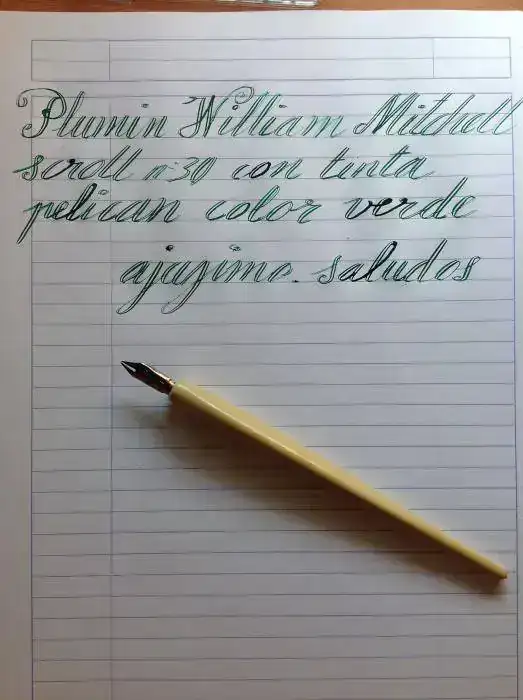 Plumin William Mitchell
scroll nº30 con tinta
pelican color verde
ajazimo. saludos